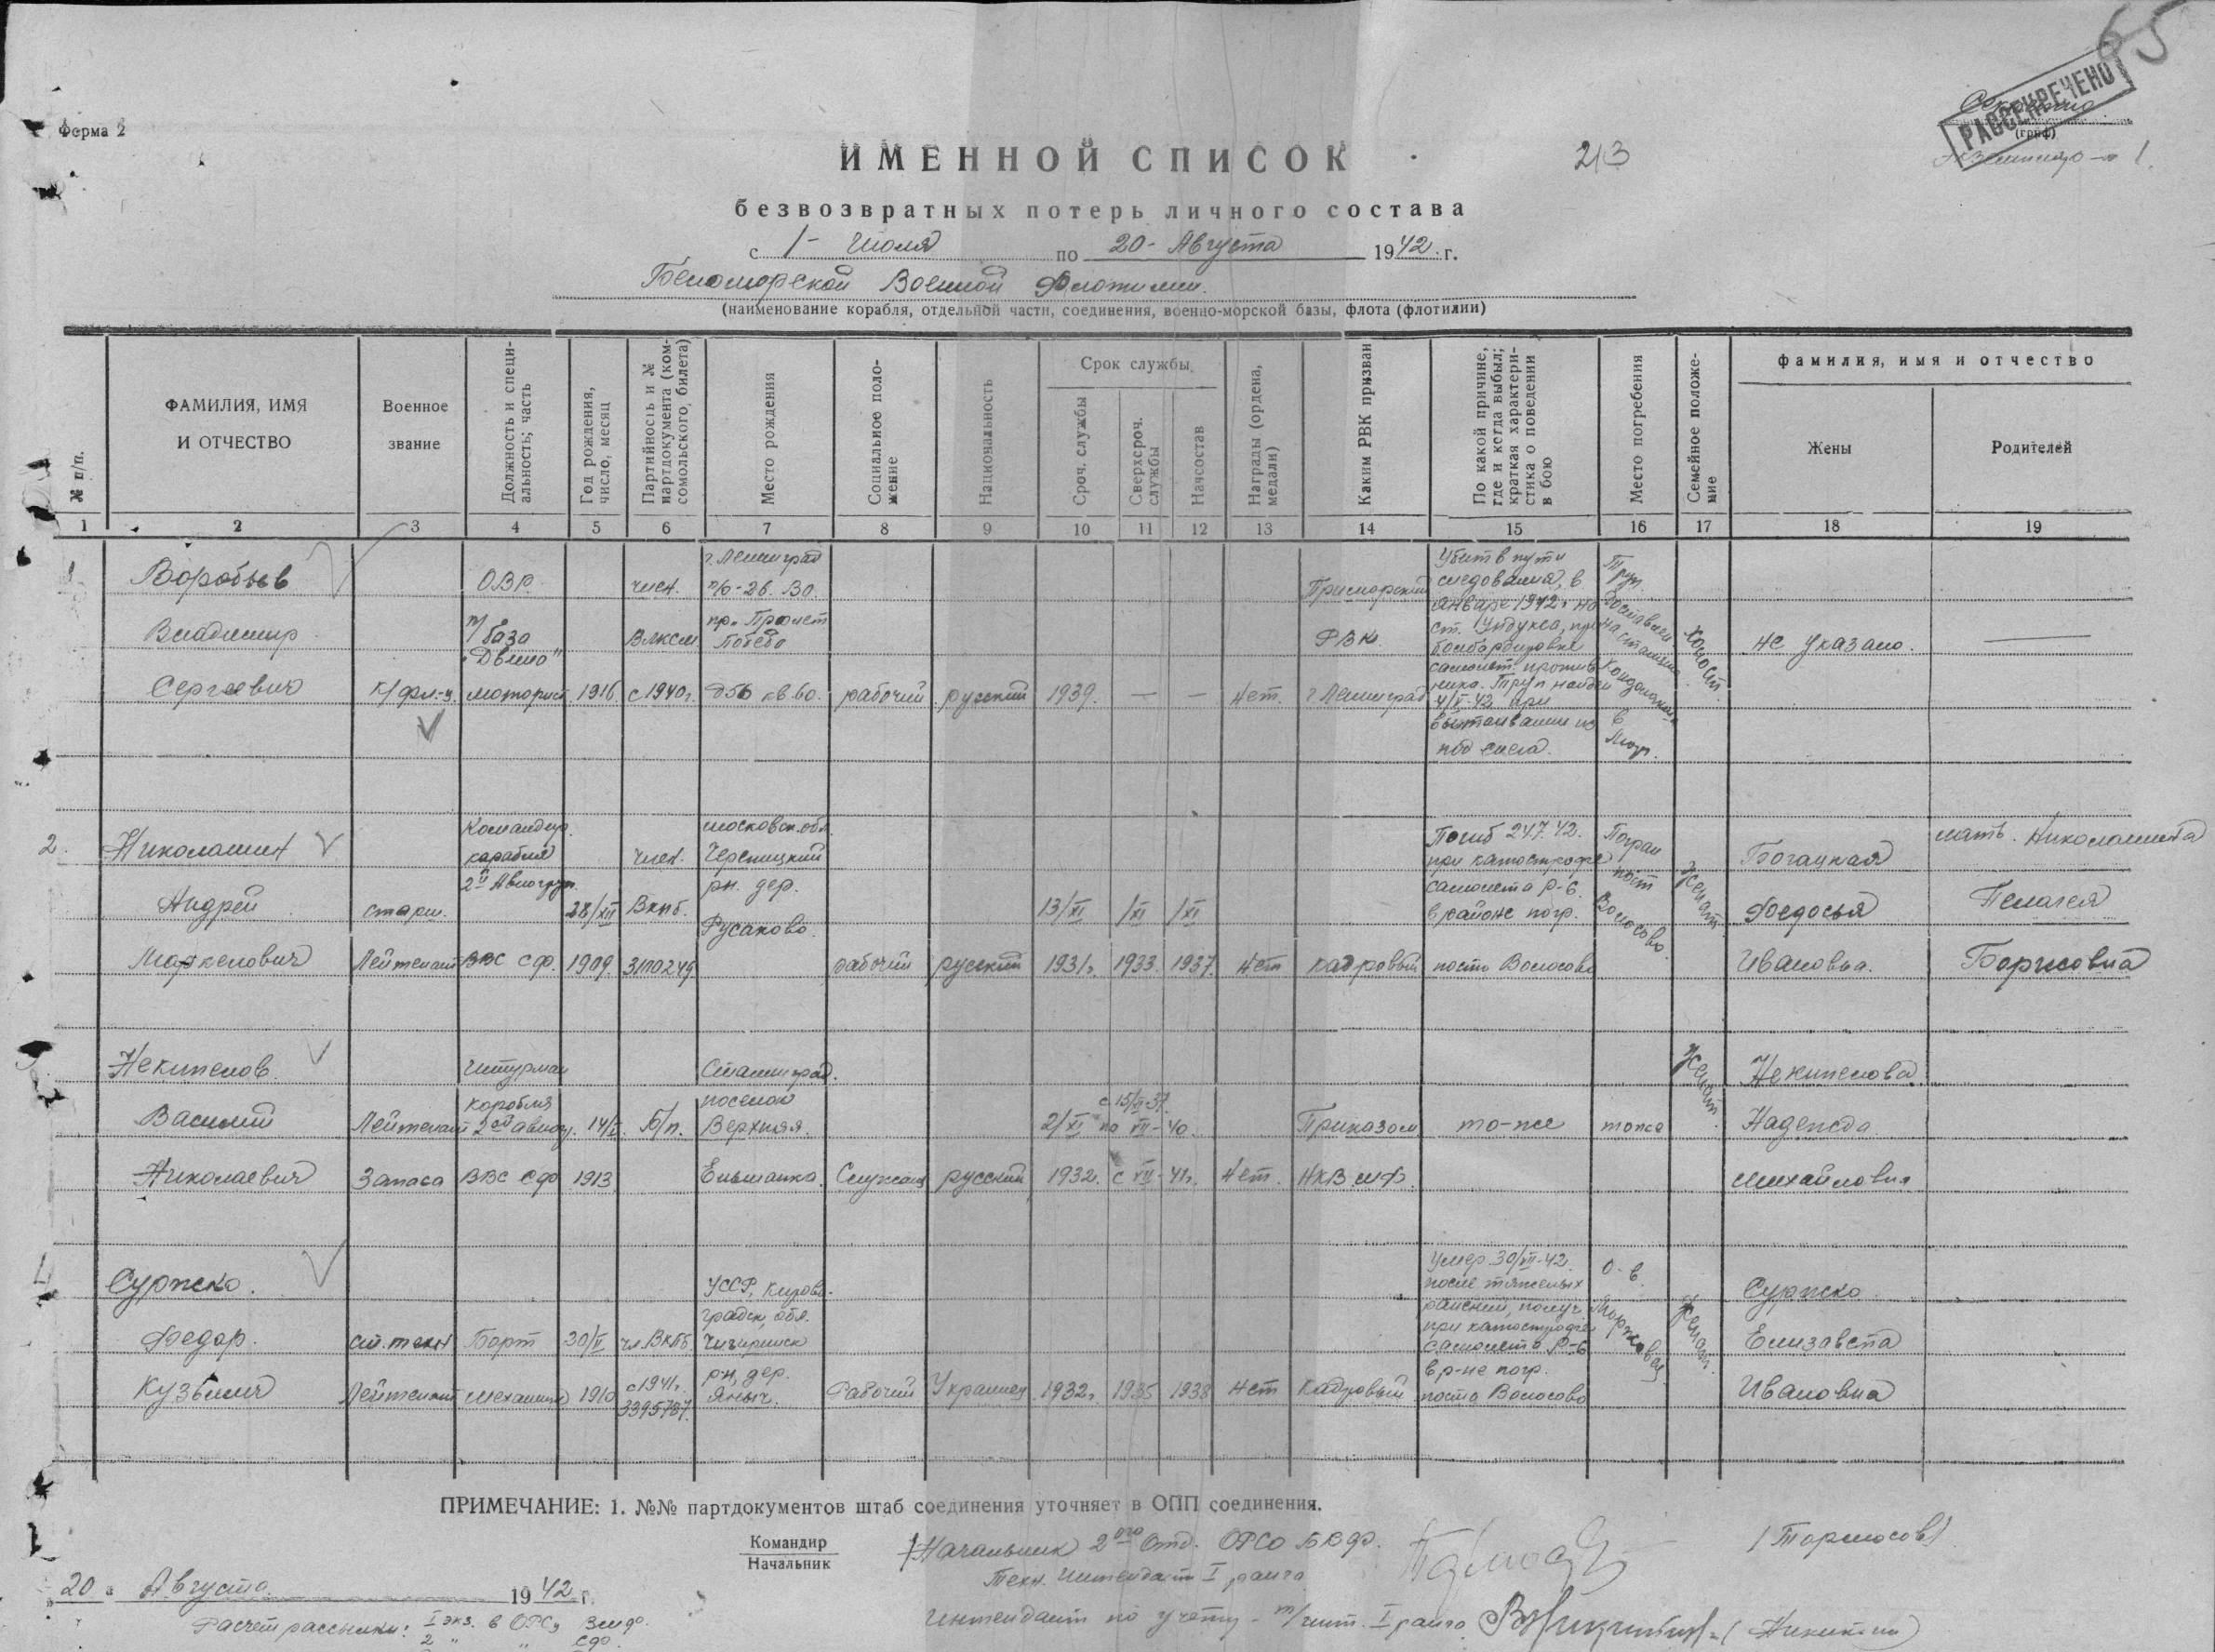 65
Форма 2
Секретно
РАССЕКРЕЧЕНО
(гриф)
ИМЕННОЙ СПИСОК
213
безвозвратных потерь личного состава
с 1- Июля по 20- Августа 1942 г.
Беломорской Военной Флотилии.
(наименование корабля, отдельной части, соединения, военно-морской базы, флота (флотилии)
№ п/п.
ФАМИЛИЯ, ИМЯ
И ОТЧЕСТВО
Военное
звание
Должность и специ-
альность; часть
Год рождения,
число, месяц
Партийность и №
партдокумента (ком-
сомольского, билета)
Место рождения
Социальное поло-
жение
Национальность
Срок службы
Сроч. службы
Сверхсроч.
службы
Начсостав
Награды (ордена,
медали)
Каким РВК призван
По какой причине,
где и когда выбыл;
краткая характери-
стика о поведении
в бою
Место погребения
Семейное положе-
ние
Фамилия, имя и отчество
Жены
Родителей
1 2 3 4 5 6 7 8 9 10 11 12 13 14 15 16 17 18 19
1
Воробьев
Владимир
Сергеевич
к/фл-ц.
ОВР.
п/база
"Двина"
моторист
1916
член.
Влксм
с 1940г.
г. Ленинград
пр. Пролет
Победы
д56 кв 60.
рабочий
русский
1939.
—
—
Нет.
Приморский
РВК.
г Ленинград
Убит в пути
следования, в
Январе 1942г на
ст. Ундукса, при
бомбардировке
самолет. против
ника. Труп найден
4/V-42 при
вытаивании из
под снега.
Труп
доставлен
на станцию
в
Холост.
Не указано.
—
2.
Николашин
Андрей
Маркелович
старш.
Лейтенант
Командир
корабля
2й Авиогруп.
ВВС СФ.
28/XII
1909.
член.
Вкпб.
3100249.
московск. обл.
рн. дер.
Русаково.
рабочий
русский
13/XI
1931г.
/XI
1933
/XI
1937
Нет
кадровый
Погиб 24.7.42.
при катострофе
самолета Р-6
в районе погр.
поста Волосово
Погран
пост
Волосово.
Женат.
Богацкая
Федосья
Ивановна.
мать. Николашина
Пелагея
Борисовна
Некипелов.
Василий
Николаевич
Лейтенант
Запаса
Штурман
корабля
2ой авиог.
ВВС СФ
1913
Б/п.
Сталинград.
поселок
Верхняя.
Ельшанка.
Служащ
русский
2/XI
1932г.
с 15/XI-37.
по VII-40.
с VII-41г.
Нет.
Приказом
НКВМФ.
то-же
тоже
Женат.
Некипелова
Надежда
Михайловна
Суржко.
Федор.
Кузьмич
ст. техн
Лейтенант
Борт
механик
30/V
1910
чл. Вкпб.
с 1941г.
3395787.
УССР, Кирово-
градск. обл.
Чигиринск
рн, дер.
Яныч.
Рабочий
Украинец
1932г.
1935
1938
Нет
Кадровый
Умер 30/VII-42.
после тяжелых
ранений, получ
при катострофе
самолета Р-6
в р-не погр.
поста Волосово
О-в.
Моржовец
Женат.
Суржко
Елизавета
Ивановна
ПРИМЕЧАНИЕ: 1. №№ партдокументов штаб соединения уточняет в ОПП соединения.
Командир
Начальник
Начальник 2ого Отд. ОРСО БВФ.
Техн. Интендант I ранга
(Тормосов)
„20" Августа 1942 г.
Расчет рассылки: I экз. в ОРСу
2 " " СФ.
Интендант по учету - т/инт. I ранга
(Никитин)